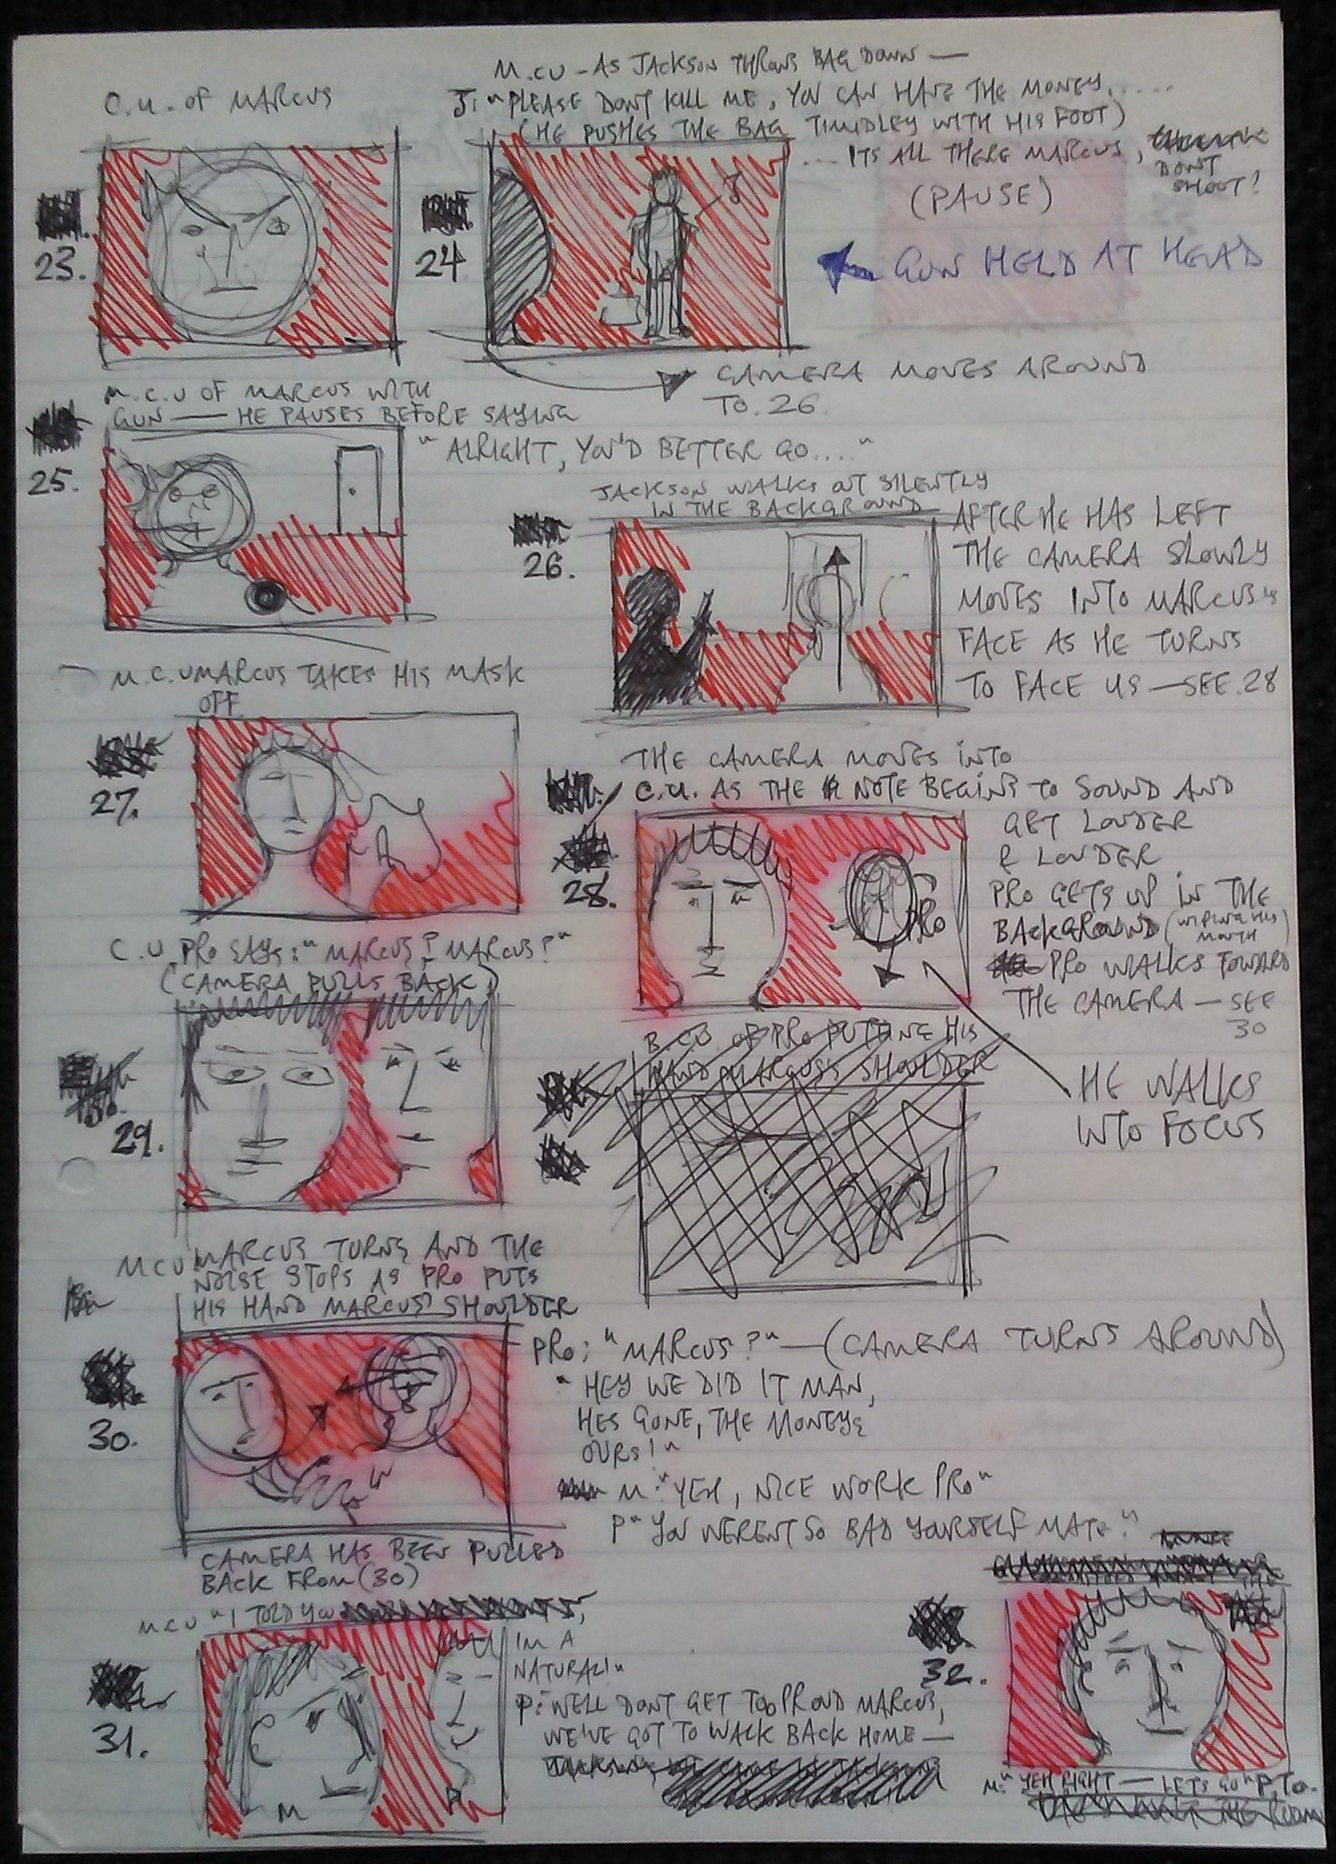 C.U. OF MARCUS
23.
M.CU - AS JACKSON THROWS BAG DOWN —
J: "PLEASE DONT KILL ME, YOU CAN HAVE THE MONEY.....
(HE PUSHES THE BAG TIMIDLEY WITH HIS FOOT)
... ITS ALL THERE MARCUS,
DON'T
SHOOT!
(PAUSE)
24
J
GUN HELD AT HEAD
CAMERA MOVES AROUND
TO. 26
M.C.U OF MARCUS WITH
GUN — HE PAUSES BEFORE SAYING
"ALRIGHT, YOU'D BETTER GO...."
25.
JACKSON WALKS OUT SILENTLY
IN THE BACKGROUND
26.
AFTER HE HAS LEFT
THE CAMERA SLOWLY
MOVES INTO MARCUS'S
FACE AS HE TURNS
TO FACE US — SEE. 28
M.C.U MARCUS TAKES HIS MASK
OFF.
27.
THE CAMERA MOVES INTO
C.U. AS THE NOTE BEGINS TO SOUND AND
GET LOUDER
& LOUDER
PRO GETS UP IN THE
BACKGROUND (WIPING HIS
MOUTH)
PRO WALKS TOWARD
THE CAMERA — SEE
30
28.
PRO
HE WALKS
INTO FOCUS
C.U. PRO SAYS: "MARCUS? MARCUS?"
(CAMERA PULLS BACK)
29.
B.C.U. OF PRO PUTTING HIS
HAND MARCUS'S SHOULDER
M.C.U MARCUS TURNS AND THE
NOISE STOPS AS PRO PUTS
HIS HAND MARCUS' SHOULDER
30.
PRO: "MARCUS?" — (CAMERA TURNS AROUND)
"HEY WE DID IT MAN,
HES GONE, THE MONEYS
OURS!"
M: "YEH, NICE WORK PRO"
P "YOU WERENT SO BAD YOURSELF MATE!"
CAMERA HAS BEEN PULLED
BACK FROM (30)
M.C.U "I TOLD YOU
IM A
NATURAL!"
P: WELL DONT GET TOO PROUD MARCUS,
WE'VE GOT TO WALK BACK HOME —
31.
M
P
32.
M: "YEH RIGHT — LETS GO" P.T.O.